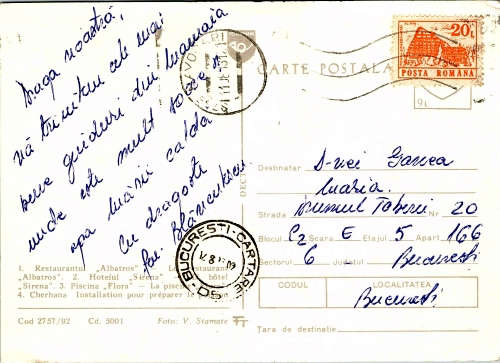 Draga noastră,
vă trimitem cele mai
bune gînduri din Mamaia
unde este mult soare și
apa mării caldă
Cu dragoste
fam.
CARTE POSTALA
20L
POSTA ROMANA
Destinatar D-nei Ganea
Maria
Strada Drumul Taberei Nr 20
Blocul C2 Scara E Etajul 5 Apart 166
Sectorul 6 Județul București
CODUL
LOCALITATEA
București
Țara de destinație
BUCURESTI-CARTARE
1. Restaurantul „Albatros"
"Albatros". 2. Hotelul "Sirena" hôtel
"Sirena". 3. Piscina „Flora" — La piscine
4. Cherhana Installation pour préparer le poisson
Cod 2757/92 Cd. 5001 Foto: V. Stamate